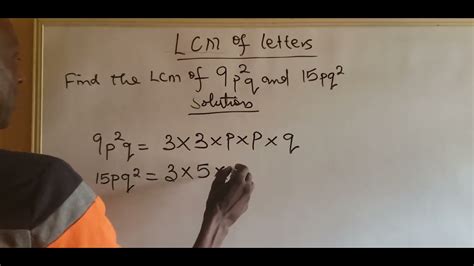 LCM of letters
Find the LCM of 9p²q and 15pq²
Solution
9p²q = 3×3×p×p×q
15pq² = 3×5×